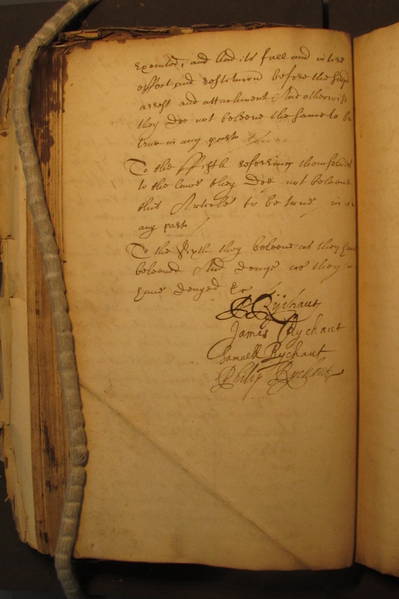 Executed, and had its full and intire
effect and restitucon before the said
arrest and attachment And otherwise
they doe not beleeve the same to be
true in any parte
To the ffifth referring themselves
to the lawe they Doe not beleeve
this Article to be true in
any part
To the Sixth they beleeve as they have
beleeved And denye as they
have denyed
P Rychaut
James Rychaut
Samuell Rychaut
Philip Rychaut